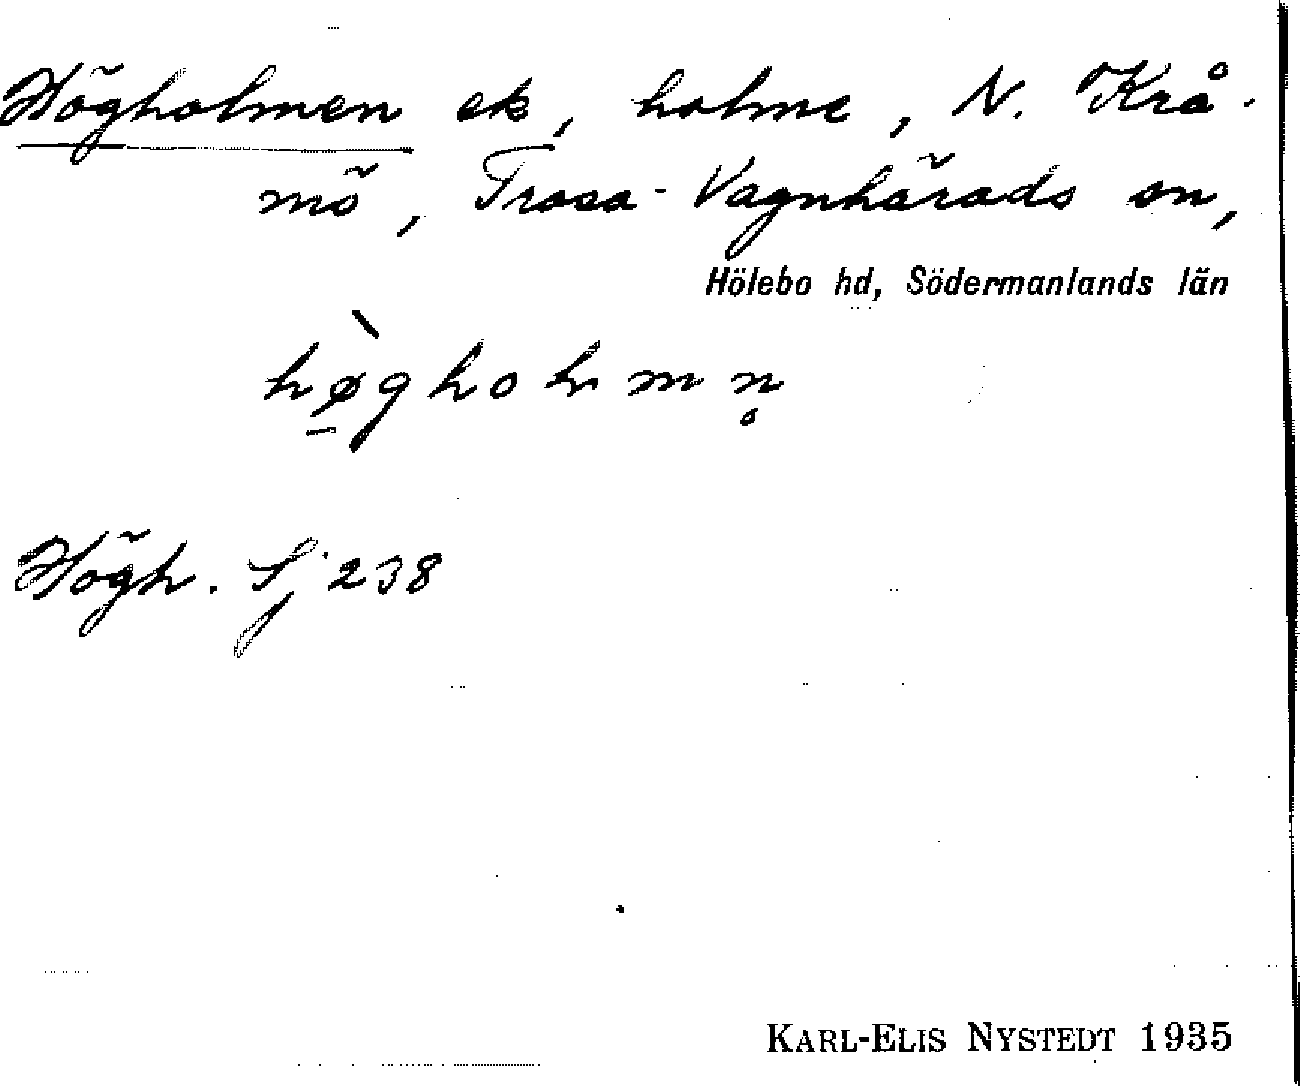 Högholmen ek, holme, N. Krå-
mö, Trosa-Vagnhärads sn,
Hölebo hd, Södermanlands län
hø̱̀gholmn̥
Högh. Sj 238
KARL-ELIS NYSTEDT 1935